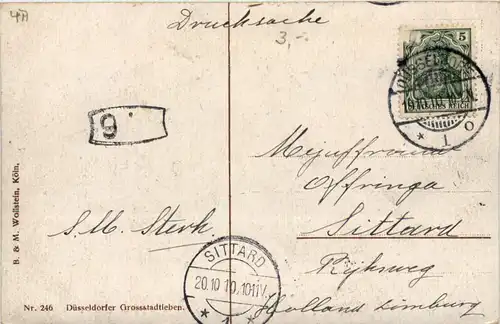 4M
Drucksache
3,-
5
DÜSSELDORF
DEUTSCHES REICH
* 1 o
9
Mejuffrouw
Offringa
Sittard
Rijksweg
Holland Limburg
S.M. Sterk.
SITTARD
20.10 10.10-11V
* 1 *
B. & M. Wollstein, Köln.
Nr. 246 Düsseldorfer Grossstadtleben.